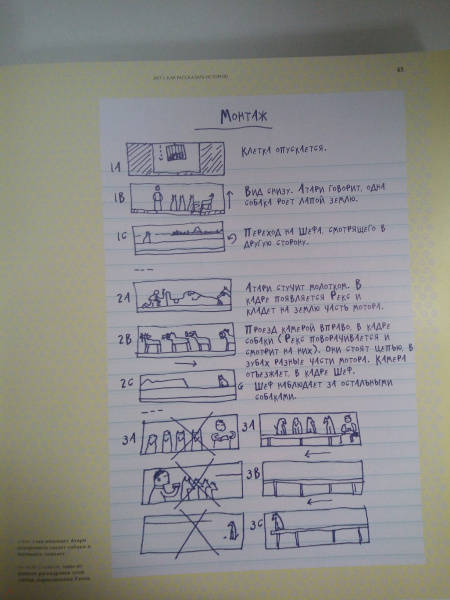 АКТ 1. КАК РАССКАЗАТЬ ИСТОРИЮ
63
МОНТАЖ
1А
КЛЕТКА ОПУСКАЕТСЯ.
1В
ВИД СНИЗУ. АТАРИ ГОВОРИТ, ОДНА
СОБАКА РОЕТ ЛАПОЙ ЗЕМЛЮ.
1С
ПЕРЕХОД НА ШЕФА, СМОТРЯЩЕГО В
ДРУГУЮ СТОРОНУ.
2А
АТАРИ СТУЧИТ МОЛОТКОМ. В
КАДРЕ ПОЯВЛЯЕТСЯ РЕКС И
КЛАДЕТ НА ЗЕМЛЮ ЧАСТЬ МОТОРА.
2В
ПРОЕЗД КАМЕРОЙ ВПРАВО, В КАДРЕ
СОБАКИ (РЕКС ПОВОРАЧИВАЕТСЯ И
СМОТРИТ НА НИХ). ОНИ СТОЯТ ЦЕПЬЮ, В
ЗУБАХ РАЗНЫЕ ЧАСТИ МОТОРА. КАМЕРА
ОТЪЕЗЖАЕТ, В КАДРЕ ШЕФ.
2С
ШЕФ НАБЛЮДАЕТ ЗА ОСТАЛЬНЫМИ
СОБАКАМИ.
3А
3А
3В
3С